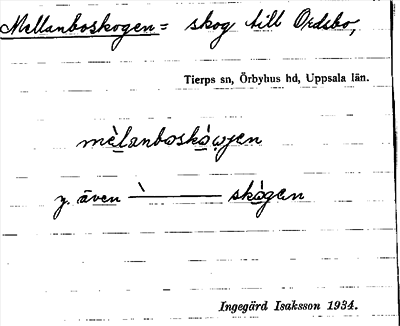 Mellanboskogen = skog till Ordsbo,
Tierps sn, Örbyhus hd, Uppsala län.
mèlanboskówgen
y. även ` ——— skógen
Ingegärd Isaksson 1934.